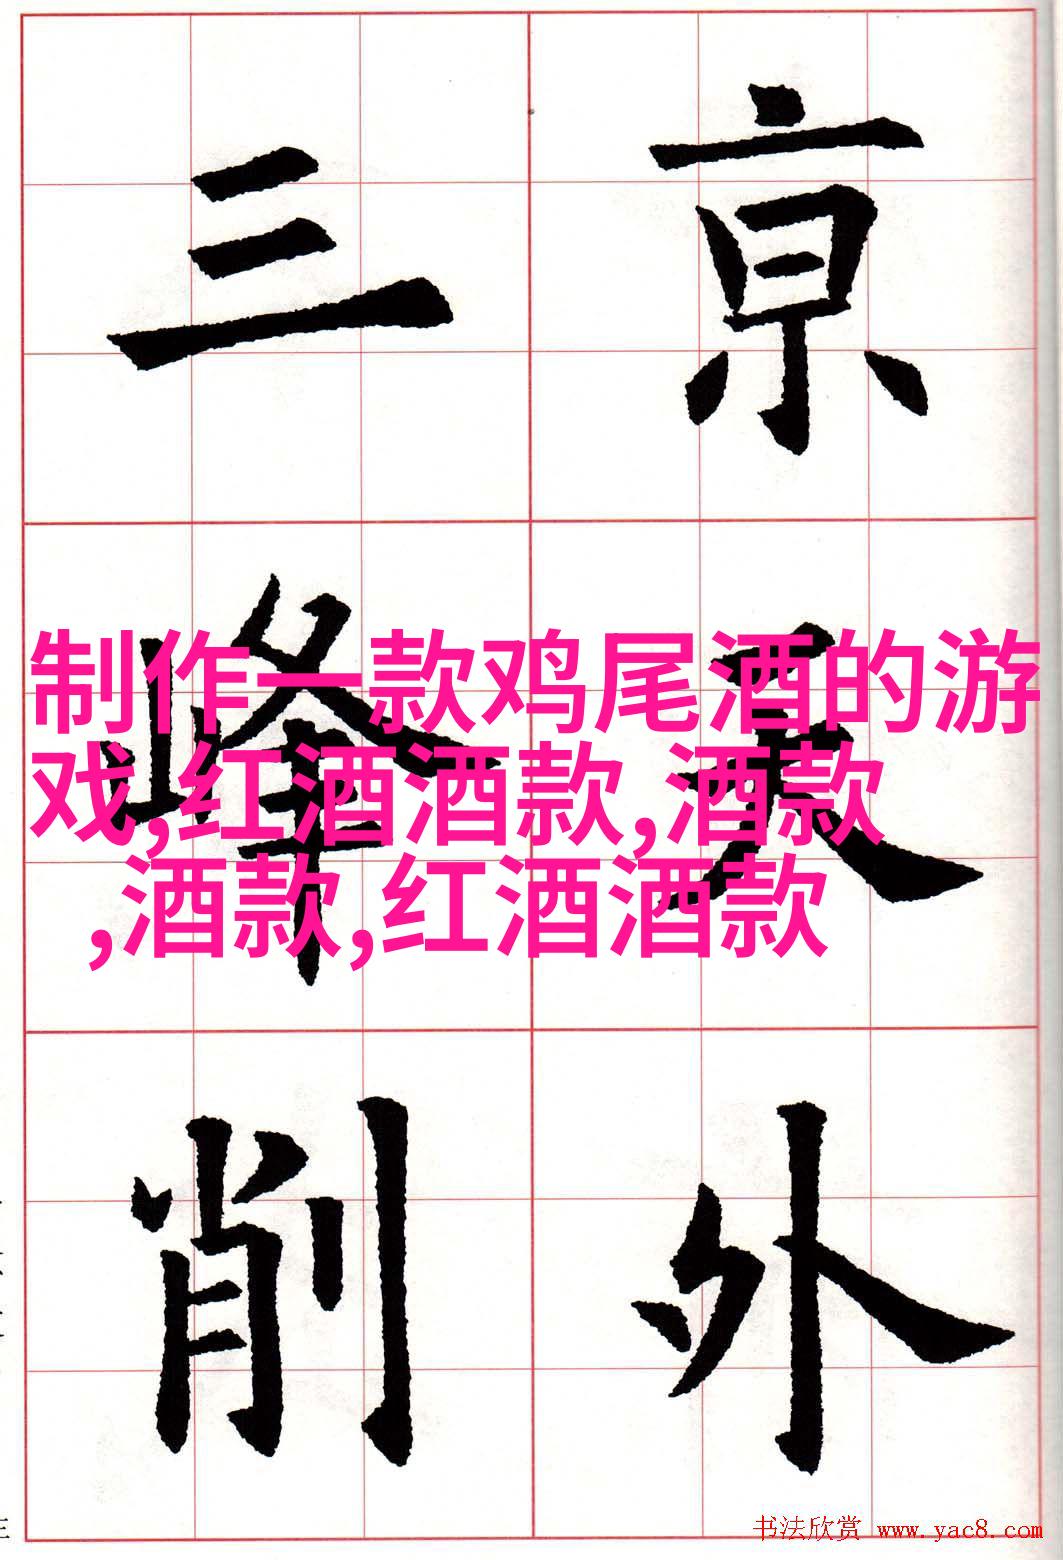 亰
天
外
三
峰
削
制作一款鸡尾酒的游
戏,红酒酒款,酒款
,酒款,红酒酒款
书法欣赏 www.yac8.com